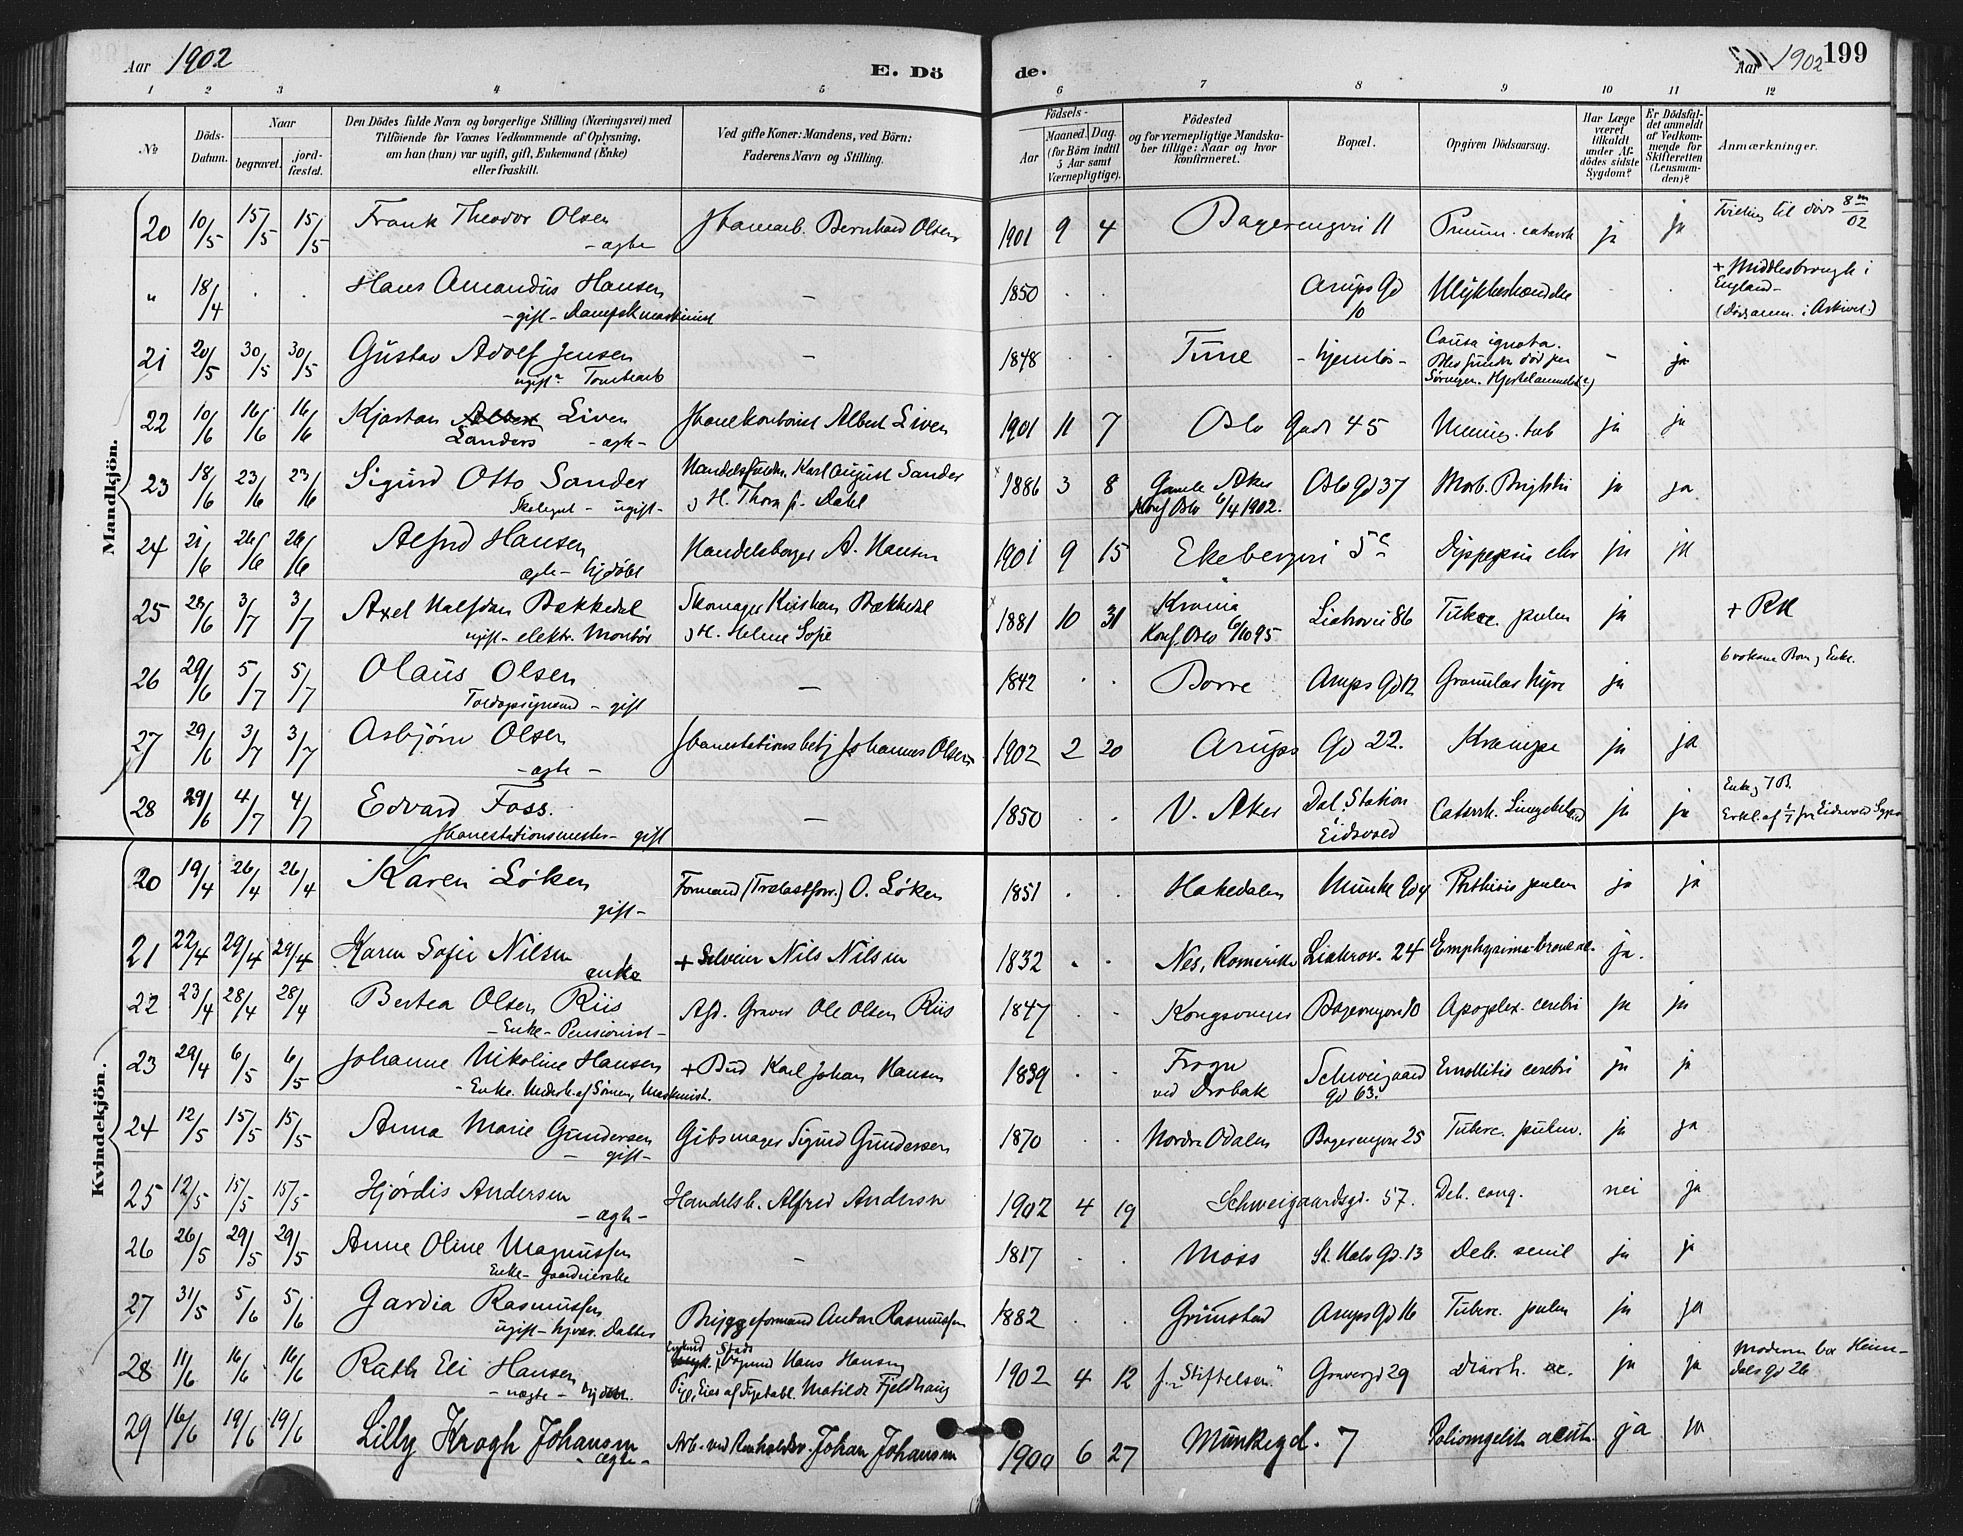 Aar 1902
E. Döde.
Aar 1902 199
1 2 3 4 5 6 7 8 9 10 11 12
No
Döds-Datum.
Naar
begravet.
jordfæstet.
Den Dödes fulde Navn og borgerlige Stilling (Næringsvei) med
Tilföiende for Voxnes Vedkommende af Oplysning,
om han (hun) var ugift, gift, Enkemand (Enke)
eller fraskilt.
Ved gifte Koner: Mandens, ved Börn:
Faderens Navn og Stilling.
Födsels-
Aar
Maaned. Dag.
(for Börn indtil
5 Aar samt
Værnepligtige).
Födested
og for værnepligtige Mandskaber
tillige: Naar og hvor
konfirmeret.
Bopæl.
Opgiven Dödsaarsag.
Har Læge
været
tilkaldt
under Afdödes
sidste
Sygdom?
Er Dödsfaldet
anmeldt
af Vedkommende
for
Skifteretten
(Lensmanden)?
Anmærkninger.
Mandkjön.
20 10/5 15/5 15/5 Frank Theodor Olsen Jbanearb. Bernhard Olsen 1901 9 4 11 ja ja
- ægte
" 18/4 . . Hans Amandus Hansen - 1850 . . Arups Gd 10 Ulykkeshændelse + Middlesbrough i England -
- gift - Dampskmaskinist
21 20/5 30/5 30/5 Gustav Adolf Jensen - 1848 . . Tune - hjemløs - Causa ignota. - ja
ugift
22 10/6 16/6 16/6 Kjartan Sanders Liven Jbanekontorist Albert Liven 1901 11 7 Oslo Gade 45 ja ja
- ægte -
23 18/6 23/6 23/6 Sigurd Otto Sander Karl August Sander 1886 3 8 Gamle Aker Oslo Gd 37 Morb. Brightii ja ja
- ugift - Konf Oslo 6/4 1902.
24 21/6 26/6 26/6 Alfred Hansen Handelsborger A. Hansen 1901 9 15 Ekebergvei 5 ja ja
ægte - hjdøbt
25 28/6 3/7 3/7 Axel Halfdan Bækkedal Skomager Kristian Bækkedal 1881 10 31 Krania 86 Tuberc. pulm ja + RH
ugift - elektr. Montør Helene Sofie Konf. Oslo
26 29/6 5/7 5/7 Olaus Olsen - 1842 . . Borre Arups Gd 12 Granulær Nyre ja
- gift
27 29/6 3/7 3/7 Asbjørn Olsen Jbanestationsbetj Johannes Olsen 1902 2 20 Arups Gd 22. Krampe ja ja
- ægte -
28 29/6 4/7 4/7 Edvard Foss. - 1850 . . V. Aker Dal Station Eidsvold ja ja
Jbanestationsmester - gift
Kvindekjön.
20 19/4 26/4 26/4 Karen Løken Formand (Trælastforr.) O. Løken 1851 . . Hakedalen Munke Gd 4 Phthisis pulm ja ja
gift -
21 22/4 29/4 29/4 Karen Sofie Nilsen + Nils Nilsen 1832 . . Nes, Romerike Liabrov. 24 ja.
enke
22 23/4 28/4 28/4 Bertea Olsen Riis Afd. Graver Ole Olsen Riis 1847 . . Kongsvinger 10 Apoplex. cerebri ja ja
- Enke - Pensionist -
23 29/4 6/5 6/5 Johanne Nikoline Hansen + Bud Karl Johan Hansen 1839 . . Frogn ved Drøbak Schweigaard Gd 63. Emollitio cerebri ja ja
- Enke. Underh. af Sønnen, Maskinist.
24 12/5 15/5 15/5 Anna Marie Gundersen Gibsmager Sigurd Gundersen 1870 . . Nordre Odalen 25 Tuberc. pulm. ja ja
- gift -
25 12/5 15/5 15/5 Hjørdis Andersen Handelsb. Alfred Andersen 1902 4 19 Schweigaardsgd. 57. Deb. cong. nei ja
- ægte -
26 26/5 29/5 29/5 Anne Oline Magnussen - 1817 . . Moss St. Halv Gd. 13 Deb. senil ja ja
Enke - Gaardeierske
27 31/5 5/6 5/6 Gardia Rasmussen Bryggeformand Anton Rasmussen 1882 . . Grimstad Arups Gd 16 Tuberc. pulm ja ja
ugift - hjvær. Datter
28 11/6 16/6 16/6 Rath Eli Hansen Hans Hansen 1902 4 12 f. "Stiftelsen" Gravergd 29 Diarrh. ac. ja ja Moderen bor Heimdals Gd 26
- uægte - Matilde Fjeldhaug
29 16/6 19/6 19/6 Lilly Krogh Johansen Arb. ved Renholdsv. Johan Johansen 1900 6 27 Munkegd. 7 Poliomyelit acut. ja ja
- ægte -